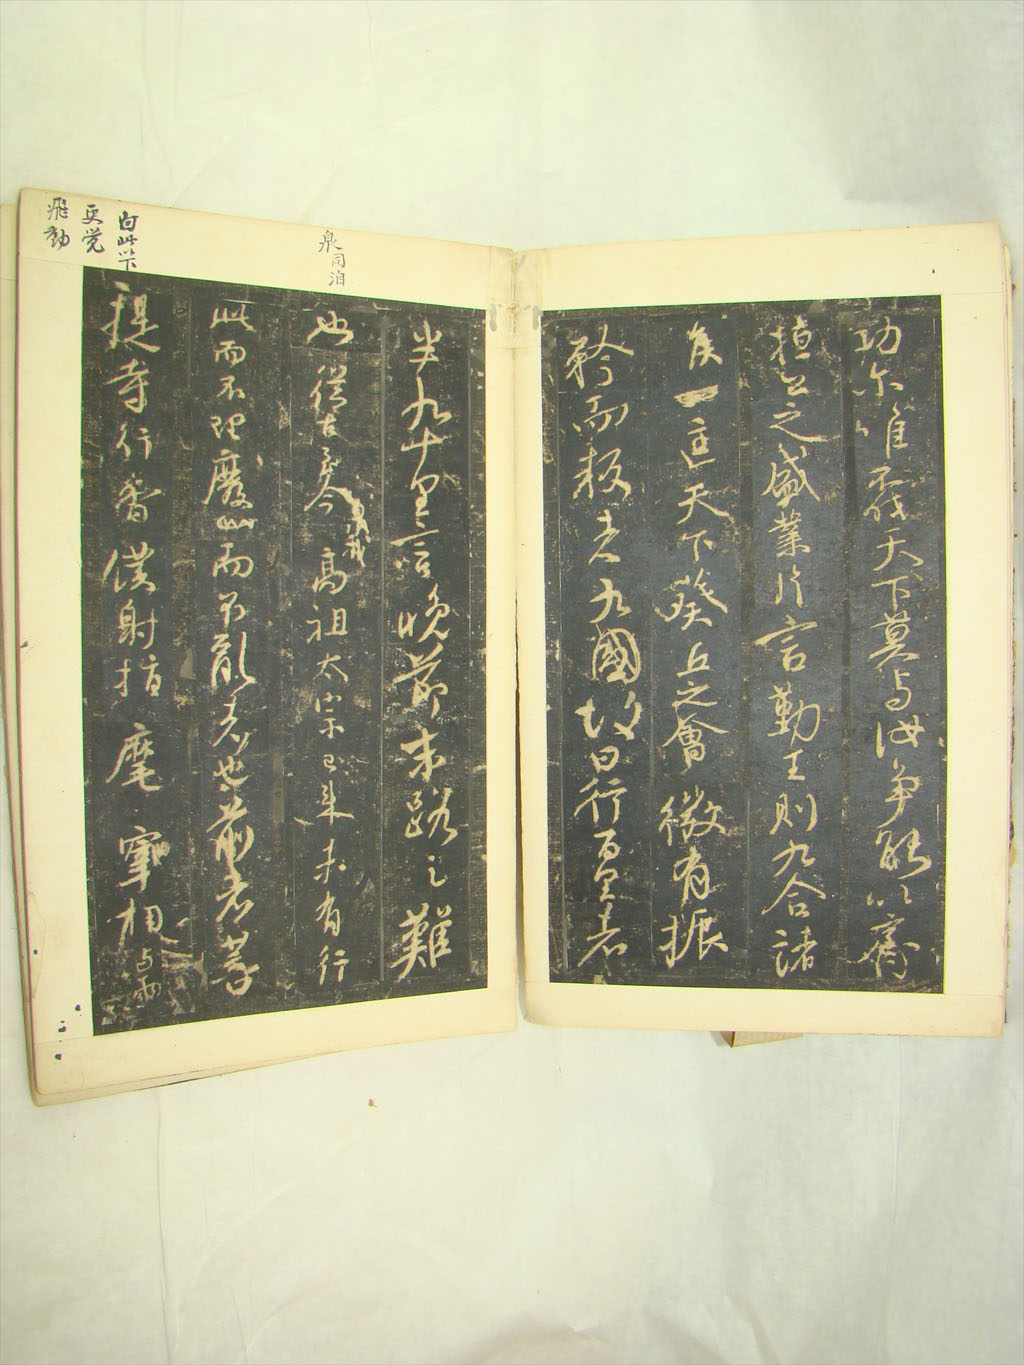 功尔唯不伐天下莫与汝争能以齊
桓公之盛業片言勤王則九合諸
侯一匡天下葵丘之會微有振
矜而叛者九國故曰行百里者
半九十里言晚節末路之難
泉同洎
也從古至今臮我高祖太宗已来未有行
此而不理廢此而不亂者也前者菩
自此以下
更覚
飛動
提寺行香僕射指麾宰相与兩